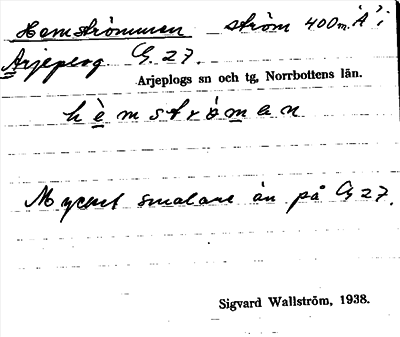 Hemströmmen ström 400 m. Å i
Arjeplog G. 27.
Arjeplogs sn och tg, Norrbottens län.
hèmströmen
Mycket smalare än på G 27.
Sigvard Wallström, 1938.